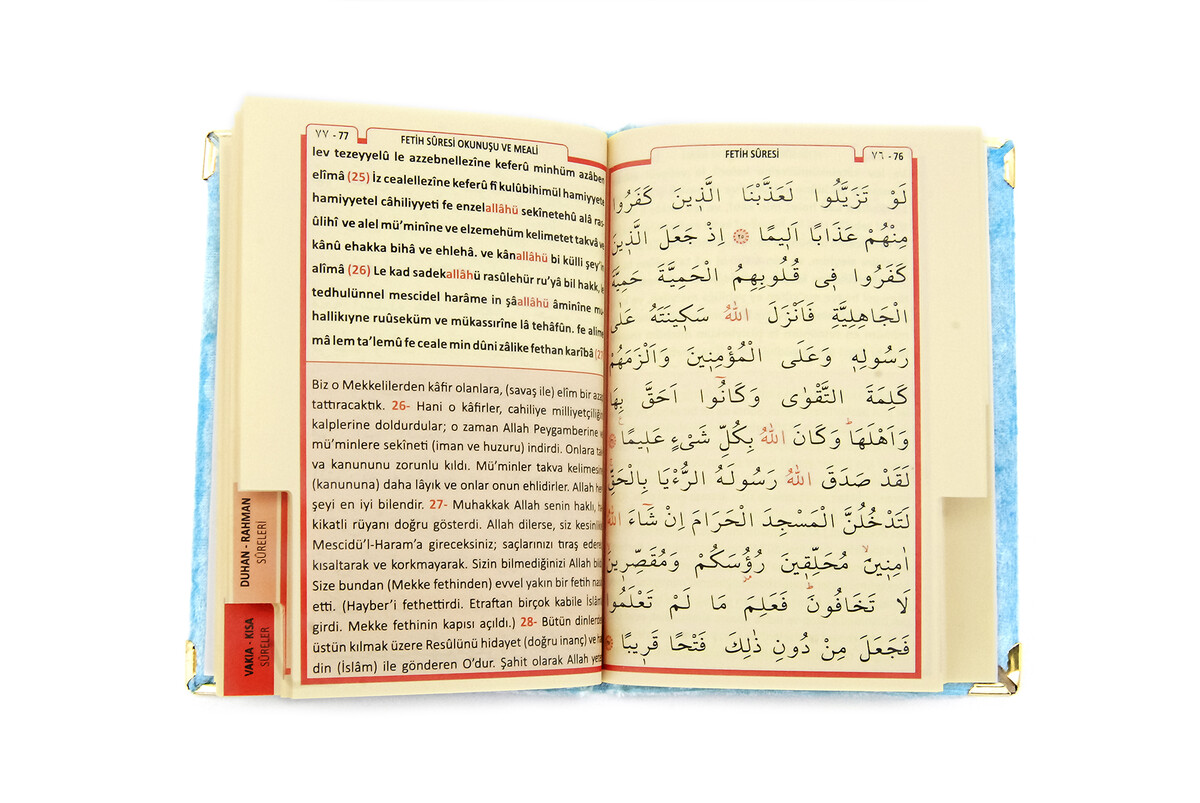 ٧٧ - 77
FETİH SÛRESİ OKUNUŞU VE MEALİ
lev tezeyyelû le azzebnellezîne keferû minhüm azâben
elîmâ (25) İz cealellezîne keferû fî kulûbihimül hamiyyete
hamiyyetel câhiliyyeti fe enzelallâhü sekînetehû alâ ras-
ûlihî ve alel mü’minîne ve elzemehüm kelimetet takvâ ve
kânû ehakka bihâ ve ehlehâ. ve kânallâhü bi külli şey’in
alîmâ (26) Le kad sadekallâhü rasûlehür ru’yâ bil hakk,
tedhulünnel mescidel harâme in şâallâhü âminîne mu-
hallikıyne ruûseküm ve mükassırîne lâ tehâfûn. fe alime
mâ lem ta’lemû fe ceale min dûni zâlike fethan karîbâ
Biz o Mekkelilerden kâfir olanlara, (savaş ile) elîm bir azap
tattıracaktık. 26- Hani o kâfirler, cahiliye milliyetçiliği
kalplerine doldurdular; o zaman Allah Peygamberine
mü’minlere sekîneti (iman ve huzuru) indirdi. Onlara tak-
va kanununu zorunlu kıldı. Mü’minler takva kelimesine
(kanununa) daha lâyık ve onlar onun ehlidirler. Allah her
şeyi en iyi bilendir. 27- Muhakkak Allah senin haklı, ha-
kikatli rüyanı doğru gösterdi. Allah dilerse, siz kesinlikle
Mescidü’l-Haram’a gireceksiniz; saçlarınızı tıraş ederek
kısaltarak ve korkmayarak. Sizin bilmediğinizi Allah bildi
Size bundan (Mekke fethinden) evvel yakın bir fetih nasip
etti. (Hayber’i fethettirdi. Etraftan birçok kabile İslâm’a
girdi. Mekke fethinin kapısı açıldı.) 28- Bütün dinlerden
üstün kılmak üzere Resûlünü hidayet (doğru inanç) ve hak
din (İslâm) ile gönderen O’dur. Şahit olarak Allah yeter
DUHAN - RAHMAN
SÛRELERİ
VAKIA - KISA
SÛRELER
FETİH SÛRESİ
٧٦ - 76
لَوْ تَزَيَّلُوا لَعَذَّبْنَا الَّذ۪ينَ كَفَرُوا
مِنْهُمْ عَذَابًا اَل۪يمًا ﴿٢٥﴾ اِذْ جَعَلَ الَّذ۪ينَ
كَفَرُوا ف۪ي قُلُوبِهِمُ الْحَمِيَّةَ حَمِيَّةَ
الْجَاهِلِيَّةِ فَاَنْزَلَ اللّٰهُ سَك۪ينَتَهُ عَلٰى
رَسُولِه۪ وَعَلَى الْمُؤْمِن۪ينَ وَاَلْزَمَهُمْ
كَلِمَةَ التَّقْوٰى وَكَانُٓوا اَحَقَّ بِهَا
وَاَهْلَهَاۜ وَكَانَ اللّٰهُ بِكُلِّ شَيْءٍ عَل۪يمًا
لَقَدْ صَدَقَ اللّٰهُ رَسُولَهُ الرُّءْيَا بِالْحَقِّ
لَتَدْخُلُنَّ الْمَسْجِدَ الْحَرَامَ اِنْ شَٓاءَ اللّٰهُ
اٰمِن۪ينَۙ مُحَلِّق۪ينَ رُؤُسَكُمْ وَمُقَصِّر۪ينَۙ
لَا تَخَافُونَۜ فَعَلِمَ مَا لَمْ تَعْلَمُوا
فَجَعَلَ مِنْ دُونِ ذٰلِكَ فَتْحًا قَر۪يبًا